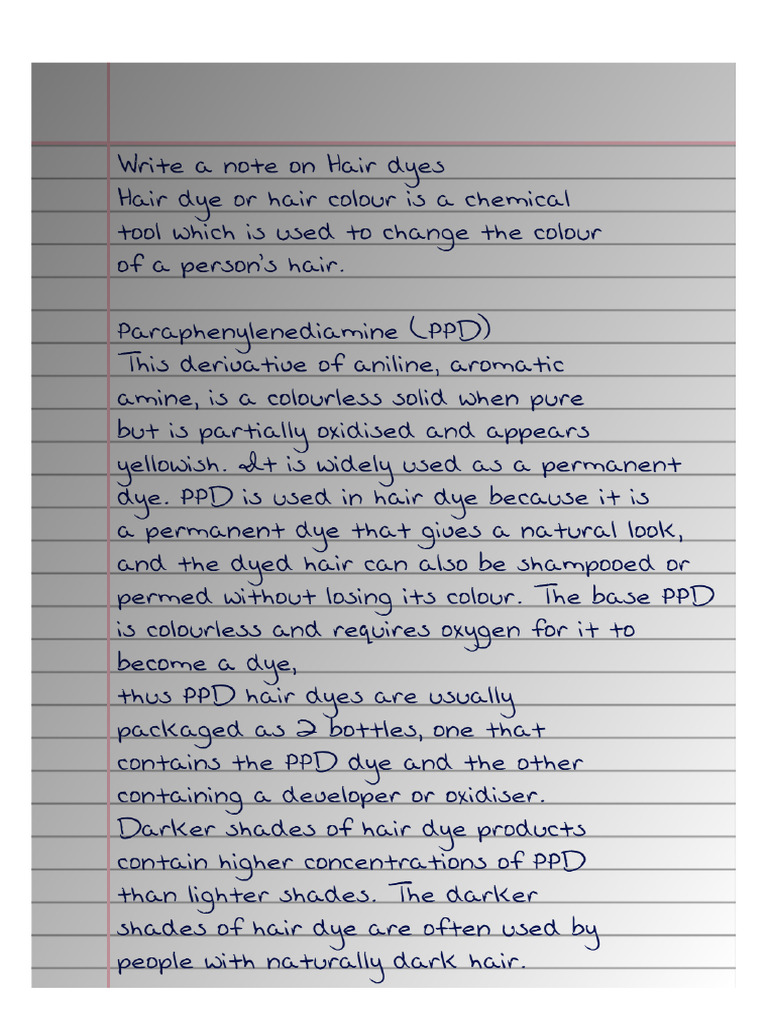 Write a note on Hair dyes
Hair dye or hair colour is a chemical
tool which is used to change the colour
of a person's hair.
Paraphenylenediamine (PPD)
This derivative of aniline, aromatic
amine, is a colourless solid when pure
but is partially oxidised and appears
yellowish. It is widely used as a permanent
dye. PPD is used in hair dye because it is
a permanent dye that gives a natural look,
and the dyed hair can also be shampooed or
permed without losing its colour. The base PPD
is colourless and requires oxygen for it to
become a dye,
thus PPD hair dyes are usually
packaged as 2 bottles, one that
contains the PPD dye and the other
containing a developer or oxidiser.
Darker shades of hair dye products
contain higher concentrations of PPD
than lighter shades. The darker
shades of hair dye are often used by
people with naturally dark hair.